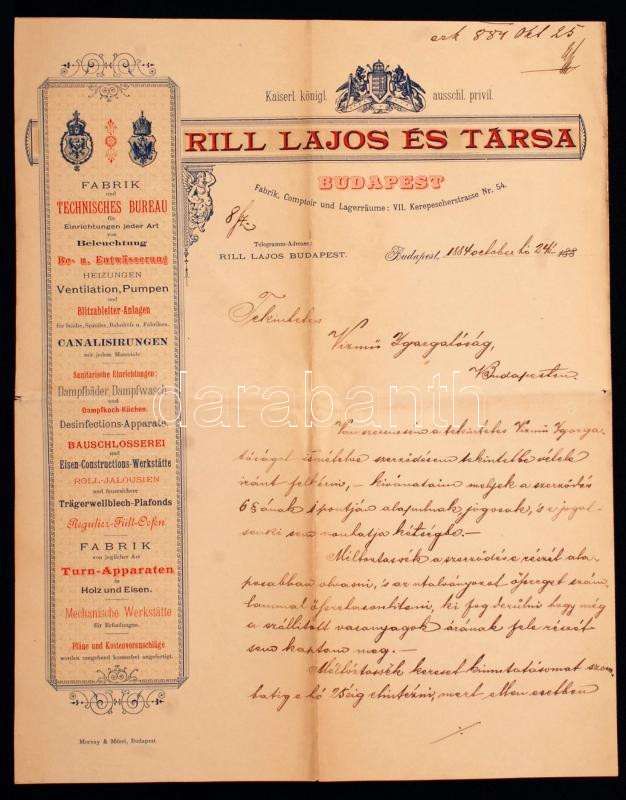 erk 884 Okt 25
Kaiserl. königl. ausschl. privil.
RILL LAJOS ÉS TÁRSA
BUDAPEST
Fabrik, Comptoir und Lagerräume: VII. Kerepescherstrasse Nr. 54.
Telegramm-Adresse:
RILL LAJOS BUDAPEST.
Budapest, 1884 october hó 24 188
FABRIK
und
TECHNISCHES BUREAU
für
Einrichtungen jeder Art
von
Beleuchtung
Be- u. Entwässerung
HEIZUNGEN
Ventilation, Pumpen
und
Blitzableiter-Anlagen
für Städte, Spitäler, Bahnhöfe u. Fabriken.
CANALISIRUNGEN
mit jedem Materiale
Sanitarische Einrichtungen:
Dampfbäder, Dampfwasch-
und
Dampfkoch-Küchen.
Desinfections-Apparate.
BAUSCHLOSSEREI
und
Eisen-Constructions-Werkstätte
ROLL-JALOUSIEN
und feuersichere
Trägerwellblech-Plafonds
Regulier-Füll-Oefen
FABRIK
von jeglicher Art
Turn-Apparaten
in
Holz und Eisen.
Mechanische Werkstätte
für Erfindungen.
Pläne und Kostenvoranschläge
worden umgehend kostenfrei angefertigt.
Morvay & Mérei, Budapest.
Tekintetes
Vizmü Igazgatóság,
Budapesten
Van szerencsém a tekintetes Vizmü Igazga-
tóságot szerződésem tekintetbe vétele
iránt felkérni, - kivánataim melyek a szerződés
6 § ának 1 pontján alapulnak, jogosak, s e jogot
senki sem vonhatja kétségbe. -
Méltóztassék a szerződés e részét ala-
posabban olvasni, s az utalványozott összeget szám-
lámmal összehasonlitani, ki fog derülni hogy még
a szállitott vasanyagok árának fele részét
sem kaptam meg. -
Méltóztassék kereset kimutatásomat szom-
batig e hó 25éig elintézni, mert ellen esetben
darabanth